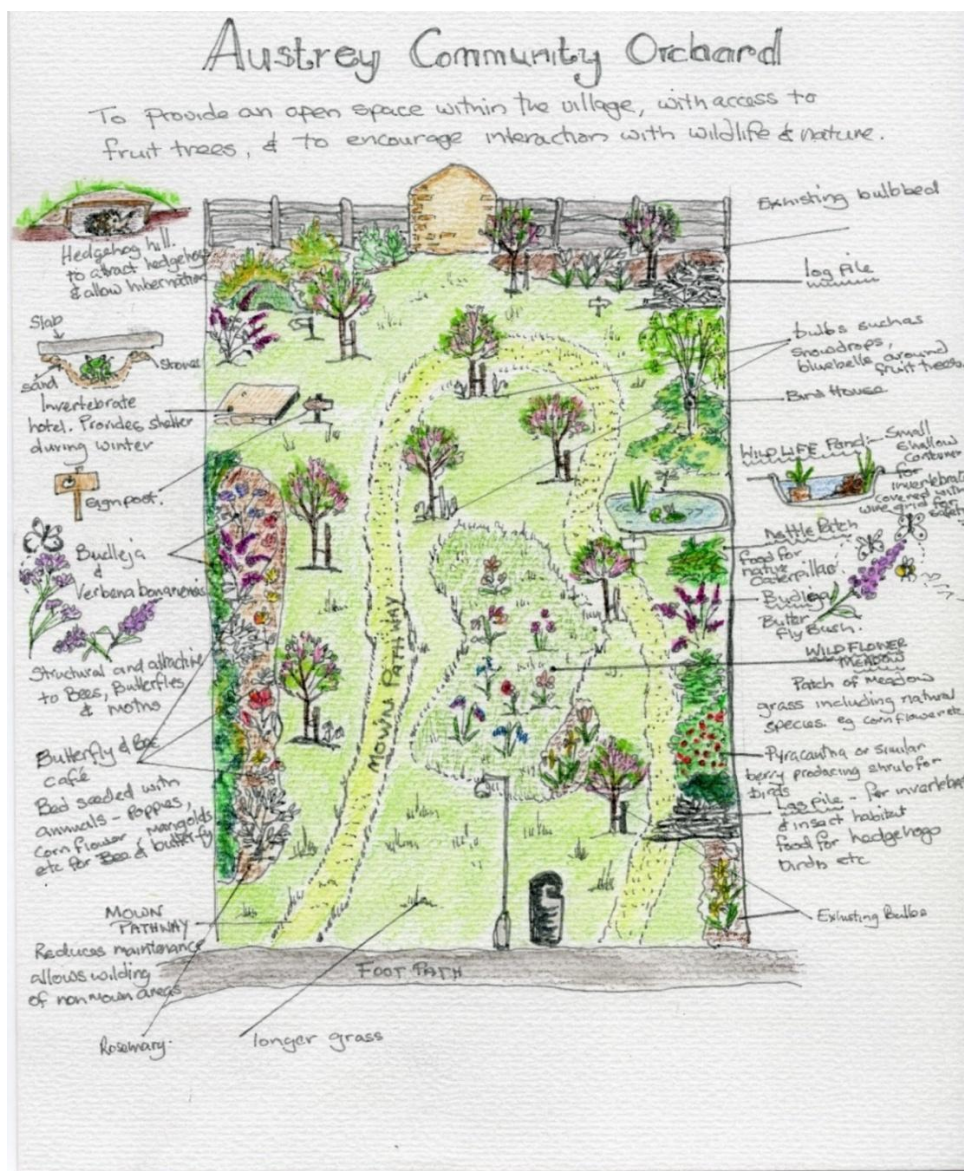 Austrey Community Orchard
To provide an open space within the village, with access to
fruit trees, & to encourage interaction with wildlife & nature.
Hedgehog hill.
to attract hedgehogs
& allow hibernation
Slab
Sand
Stones
Invertebrate
hotel. Provides shelter
during winter
Signpost.
Budleja
&
Verbena bonariensis
Structural and attractive
to Bees, Butterflies
& moths
Butterfly & Bee
café
Bed seeded with
annuals - Poppies,
Corn flower, Marigolds
etc for Bee & butterfly
MOWN
PATHWAY
Reduces maintenance
allows wilding
of non mown areas
Rosemary.
longer grass
MOWN PATHWAY
FOOT PATH
Exhisting bulb bed
log pile
bulbs such as
snowdrops,
bluebells around
fruit trees.
Bird House
WILD LIFE Pond:- Small
shallow
container
for
invertebrates
covered with
wire grid for
safety
Nettle Patch
food for
native
Caterpillar.
Budleja
Butter
fly Bush.
WILD FLOWER
MEADOW
Patch of Meadow
grass including natural
species. eg cornflower etc
Pyracantha or similar
berry producing shrub for
birds
Log Pile - For invertebrate
& insect habitat
food for hedgehogs
birds etc
Exhisting Bulbs